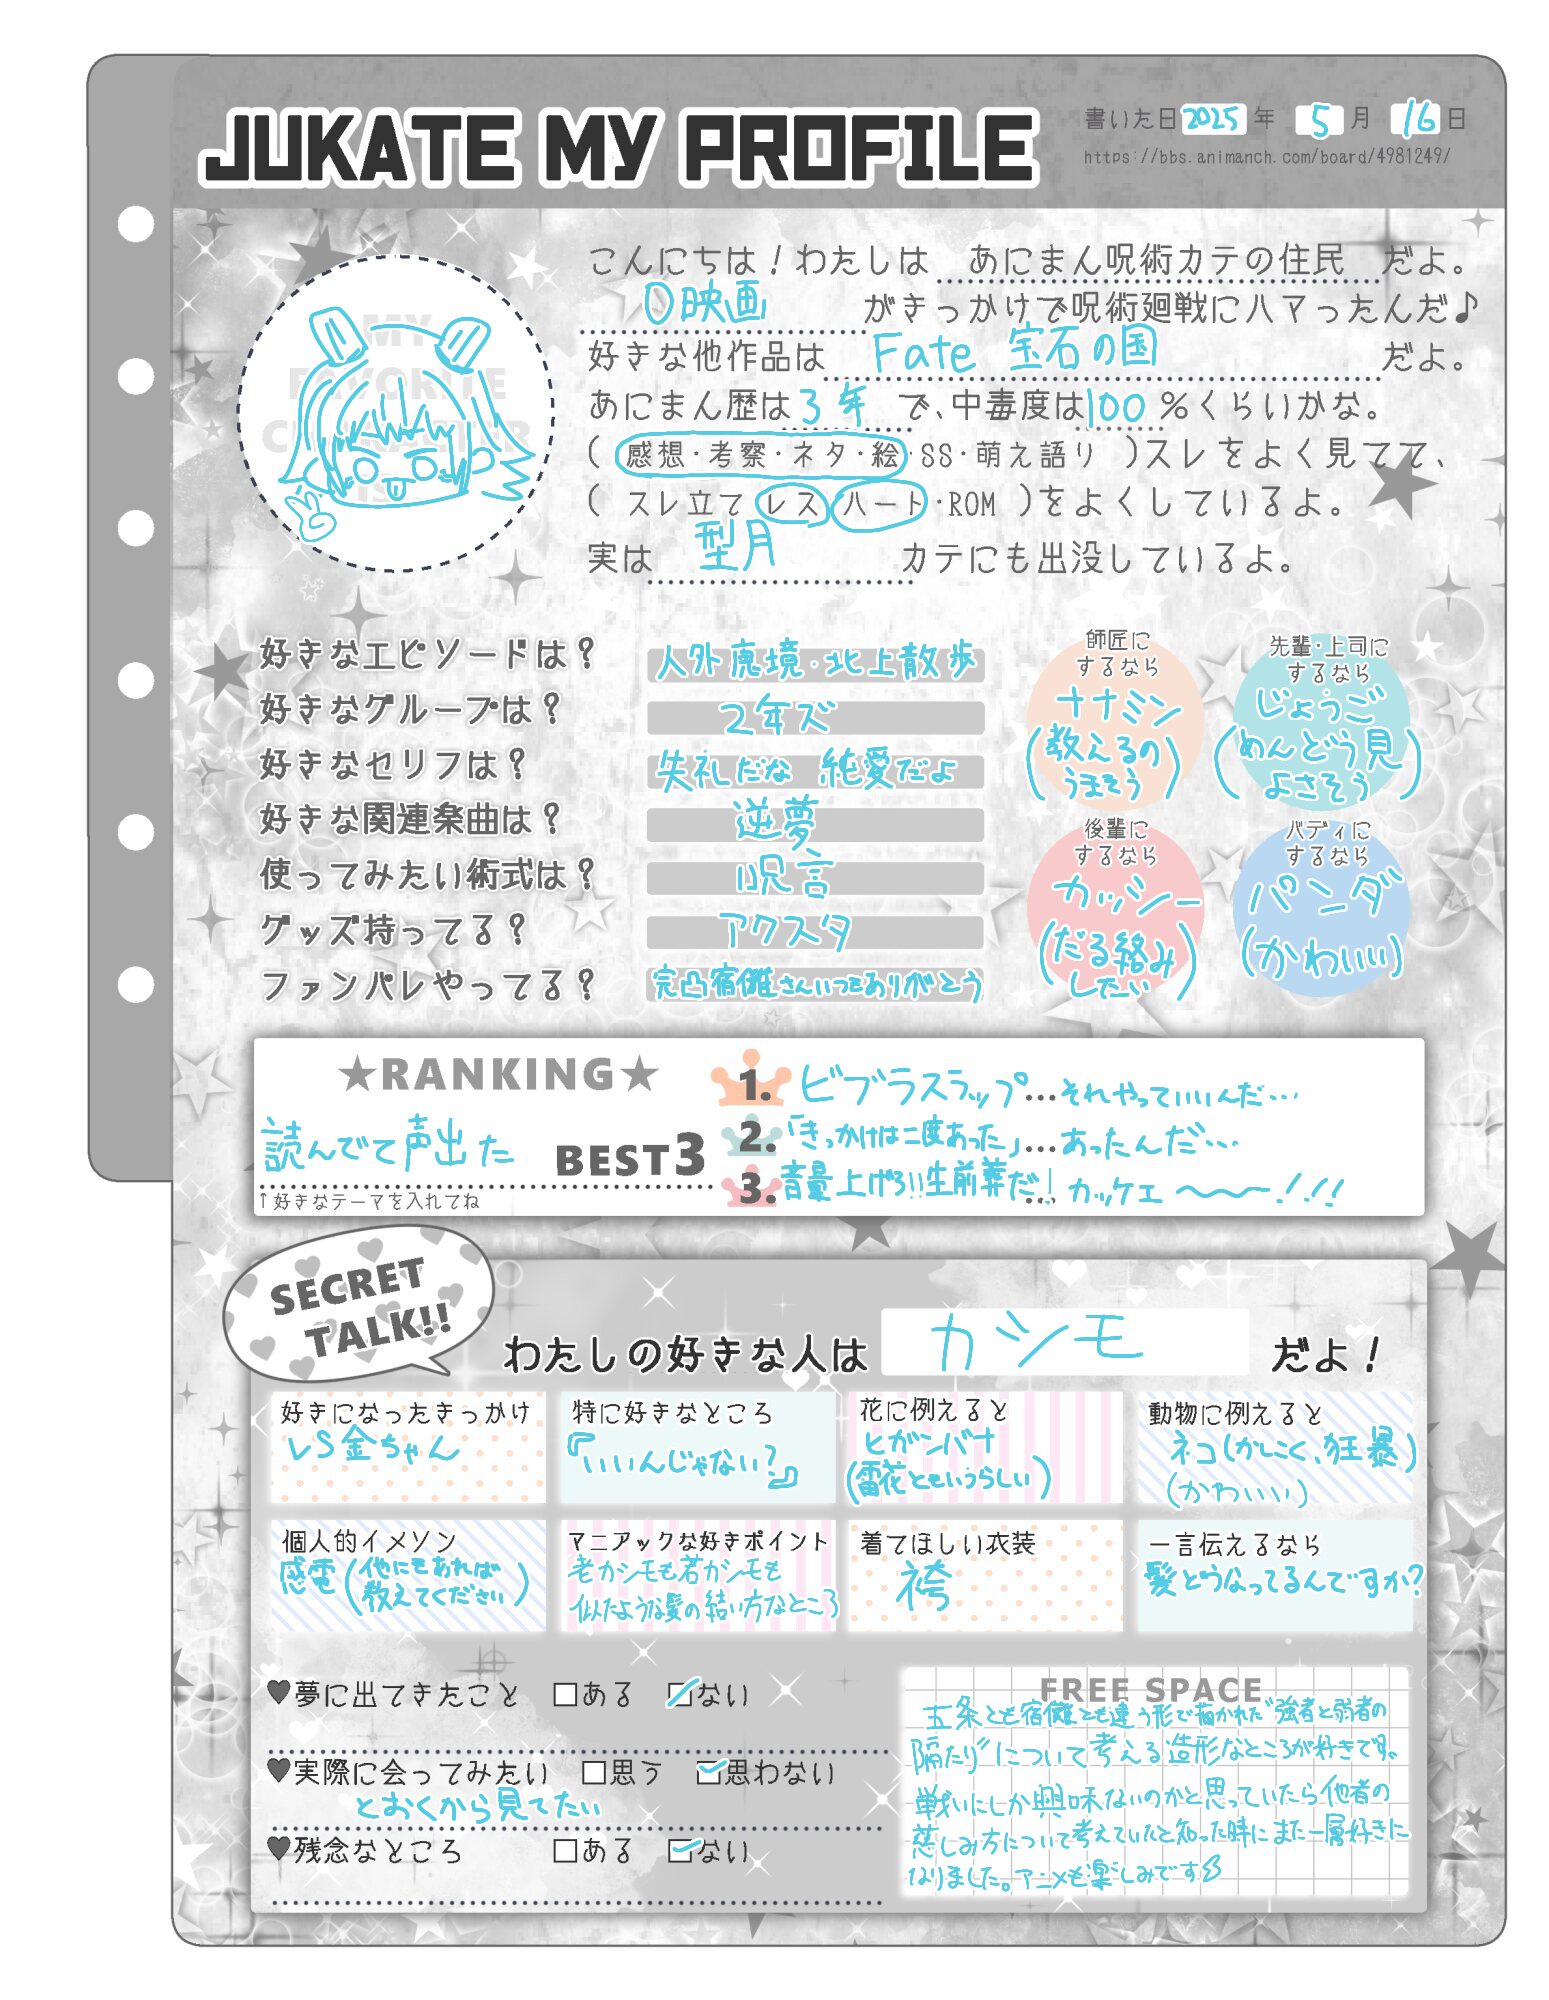 JUKATE MY PROFILE
書いた日 2025 年 5 月 16 日
https://bbs.animanch.com/board/4981249/
MY
FAVORITE
CHARACTER
IS
こんにちは！わたしは あにまん呪術カテの住民 だよ。
0映画 がきっかけで呪術廻戦にハマったんだ♪
好きな他作品は Fate 宝石の国 だよ。
あにまん歴は 3年 で、中毒度は100 %くらいかな。
( 感想・考察・ネタ・絵・SS・萌え語り )スレをよく見てて、
( スレ立て レス ハート・ROM )をよくしているよ。
実は 型月 カテにも出没しているよ。
好きなエピソードは？ 人外魔境・北上散歩
好きなグループは？ 2年ズ
好きなセリフは？ 失礼だな 純愛だよ
好きな関連楽曲は？ 逆夢
使ってみたい術式は？ 呪言
グッズ持ってる？ アクスタ
ファンパレやってる？ 完凸宿儺さんいつもありがとう
師匠に
するなら
ナナミン
(教えるの
うまそう)
先輩・上司に
するなら
じょうご
(めんどう見
よさそう)
後輩に
するなら
カッシー
(だる絡み
したい)
バディに
するなら
パンダ
(かわいい)
★RANKING★
読んでて声出た BEST3
↑好きなテーマを入れてね
1. ビブラスラップ…それやっていいんだ…
2. 「きっかけは二度あった」…あったんだ…
3. 音量上げろ!!生前葬だ！…カッケエ〜〜!!!
SECRET
TALK!!
わたしの好きな人は カシモ だよ！
好きになったきっかけ
VS金ちゃん
特に好きなところ
『いいんじゃない?』
花に例えると
ヒガンバナ
(雷花ともいうらしい)
動物に例えると
ネコ(かしこく、狂暴)
(かわいい)
個人的イメソン
感電(他にもあれば
教えてください)
マニアックな好きポイント
老カシモも若カシモも
似たような髪の結い方なところ
着てほしい衣装
袴
一言伝えるなら
髪どうなってるんですか?
♥夢に出てきたこと □ある □ない
♥実際に会ってみたい □思う □思わない
とおくから見てたい
♥残念なところ □ある □ない
FREE SPACE
五条とも宿儺とも違う形で描かれた"強者と弱者の
隔たり"について考える造形なところが好きです。
戦いにしか興味ないのかと思っていたら他者の
慈しみ方について考えていたと知った時にまた一層好きに
なりました。アニメも楽しみです